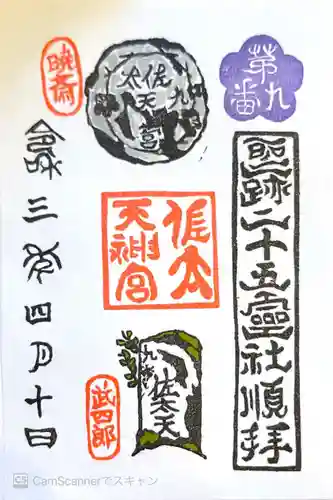 第九番
聖跡二十五霊社順拝
佐太天宮
九
佐太天神宮
九番
佐太天
暁斎
令和三年四月十日
武四郎
CS CamScannerでスキャン